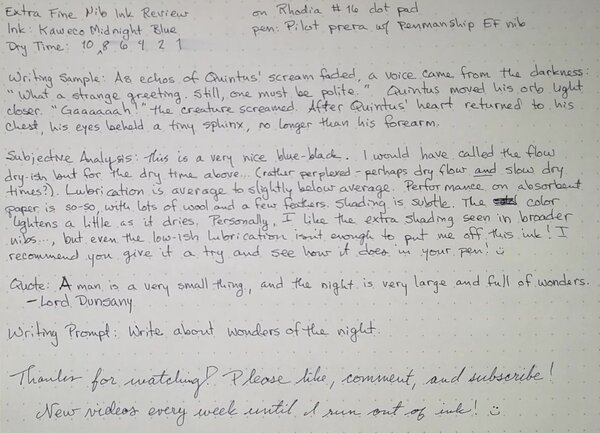 Extra Fine Nib Ink Review on Rhodia #16 dot pad
Ink: Kaweco Midnight Blue pen: Pilot prera w/ Penmanship EF nib
Dry Time: 10 8 6 4 2 1
Writing Sample: As echos of Quintus' scream faded, a voice came from the darkness:
"What a strange greeting. Still, one must be polite." Quintus moved his orb light
closer. "Gaaaaaah!" the creature screamed. After Quintus' heart returned to his
chest, his eyes beheld a tiny sphinx, no longer than his forearm.
Subjective Analysis: This is a very nice blue-black. I would have called the flow
dry-ish but for the dry time above... (rather perplexed - perhaps dry flow and slow dry
times?). Lubrication is average to slightly below average. Performance on absorbent
paper is so-so, with lots of wool and a few feathers. Shading is subtle. The color
lightens a little as it dries. Personally, I like the extra shading seen in broader
nibs..., but even the low-ish lubrication isn't enough to put me off this ink! I
recommend you give it a try and see how it does in your pen! :)
Quote: A man is a very small thing, and the night is very large and full of wonders.
-Lord Dunsany
Writing Prompt: Write about wonders of the night.
Thanks for watching! Please like, comment, and subscribe!
New videos every week until I run out of ink! :)